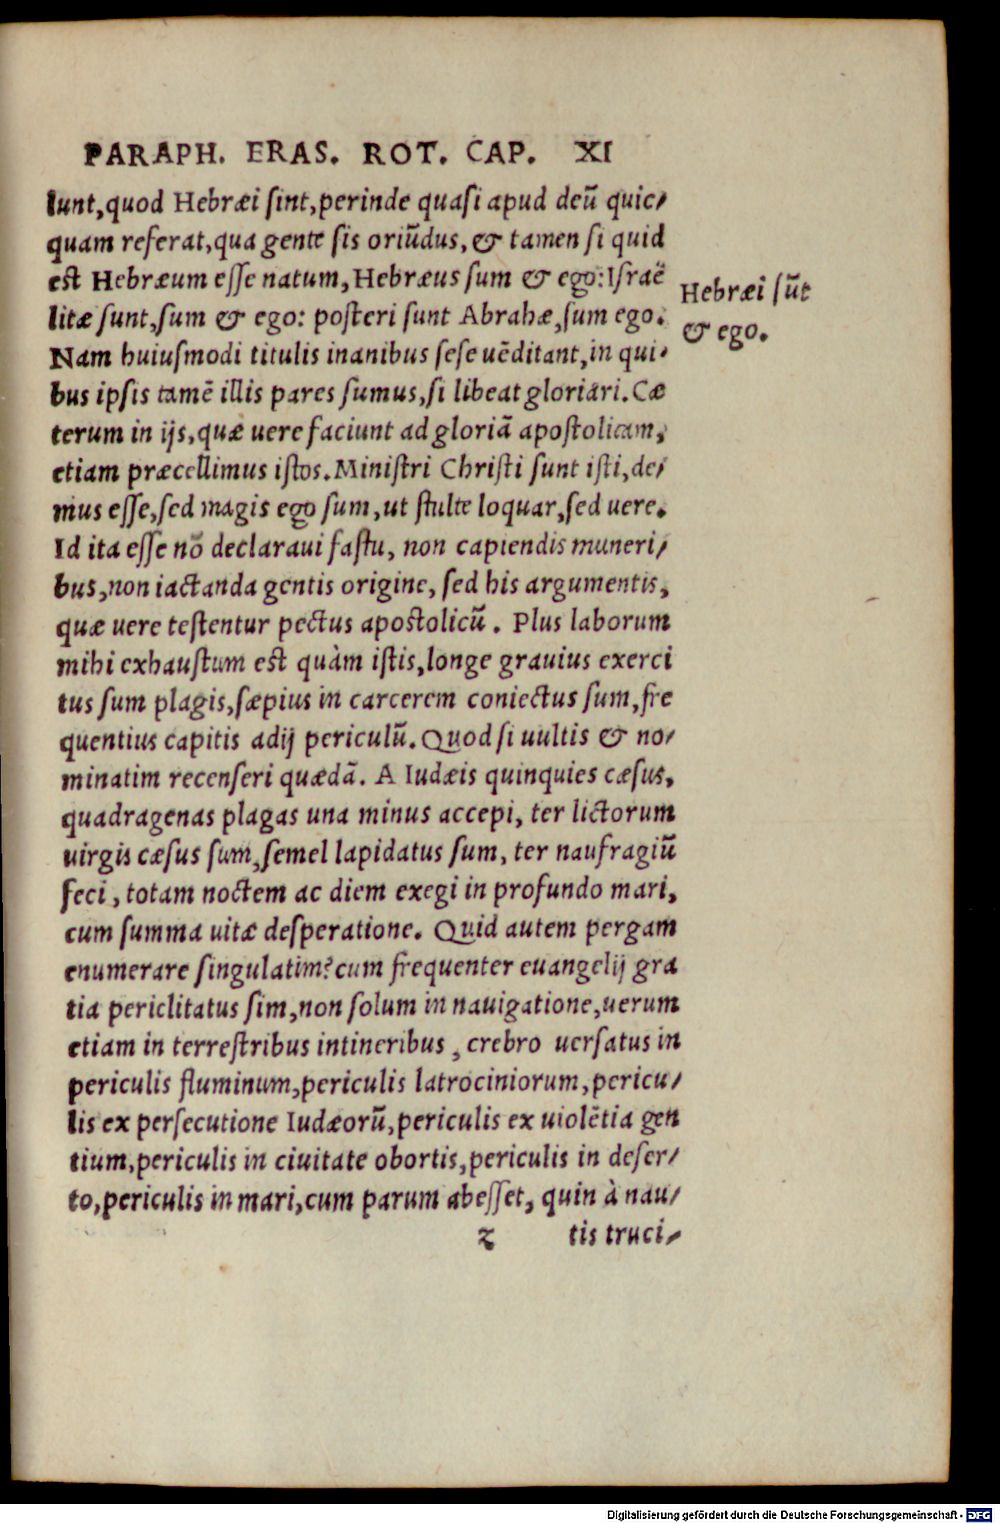 PARAPH. ERAS. ROT. CAP. XI
lunt,quod Hebræi ſint,perinde quaſi apud deū quic/
quam referat,qua gente ſis oriūdus, & tamen ſi quid
est Hebræum eſſe natum,Hebræus ſum & ego:Iſraē
litæ ſunt,ſum & ego: poſteri ſunt Abrahæ,ſum ego.
Nam huiuſmodi titulis inanibus ſeſe uēditant,in qui/
bus ipſis tamē illis pares ſumus,ſi libeat gloriari. Cæ
terum in ijs,quæ uere faciunt ad gloriā apoſtolicam,
etiam præcellimus iſtos. Miniſtri Chriſti ſunt iſti,de/
mus eſſe,ſed magis ego ſum,ut ſtulte loquar,ſed uere.
Id ita eſſe nō declaraui faſtu, non capiendis muneri/
bus,non iactanda gentis origine, ſed his argumentis,
quæ uere teſtentur pectus apoſtolicū. Plus laborum
mihi exhauſtum est quàm iſtis,longe grauius exerci
tus ſum plagis,ſæpius in carcerem coniectus ſum,fre
quentius capitis adij periculū. Quod ſi uultis & no/
minatim recenſeri quædā. A Iudæis quinquies cæſus,
quadragenas plagas una minus accepi, ter lictorum
uirgis cæſus ſum,ſemel lapidatus ſum, ter naufragiū
feci, totam noctem ac diem exegi in profundo mari,
cum ſumma uitæ deſperatione. Quid autem pergam
enumerare ſingulatim?cum frequenter euangelij gra
tia periclitatus ſim,non ſolum in nauigatione,uerum
etiam in terreſtribus intineribus, crebro uerſatus in
periculis fluminum,periculis latrociniorum,pericu/
lis ex perſecutione Iudæorū,periculis ex uiolētia gen
tium,periculis in ciuitate obortis,periculis in deſer/
to,periculis in mari,cum parum abeſſet, quin à nau/
z tis truci/
Hebræi ſūt
& ego.
Digitalisierung gefördert durch die Deutsche Forschungsgemeinschaft - DFG